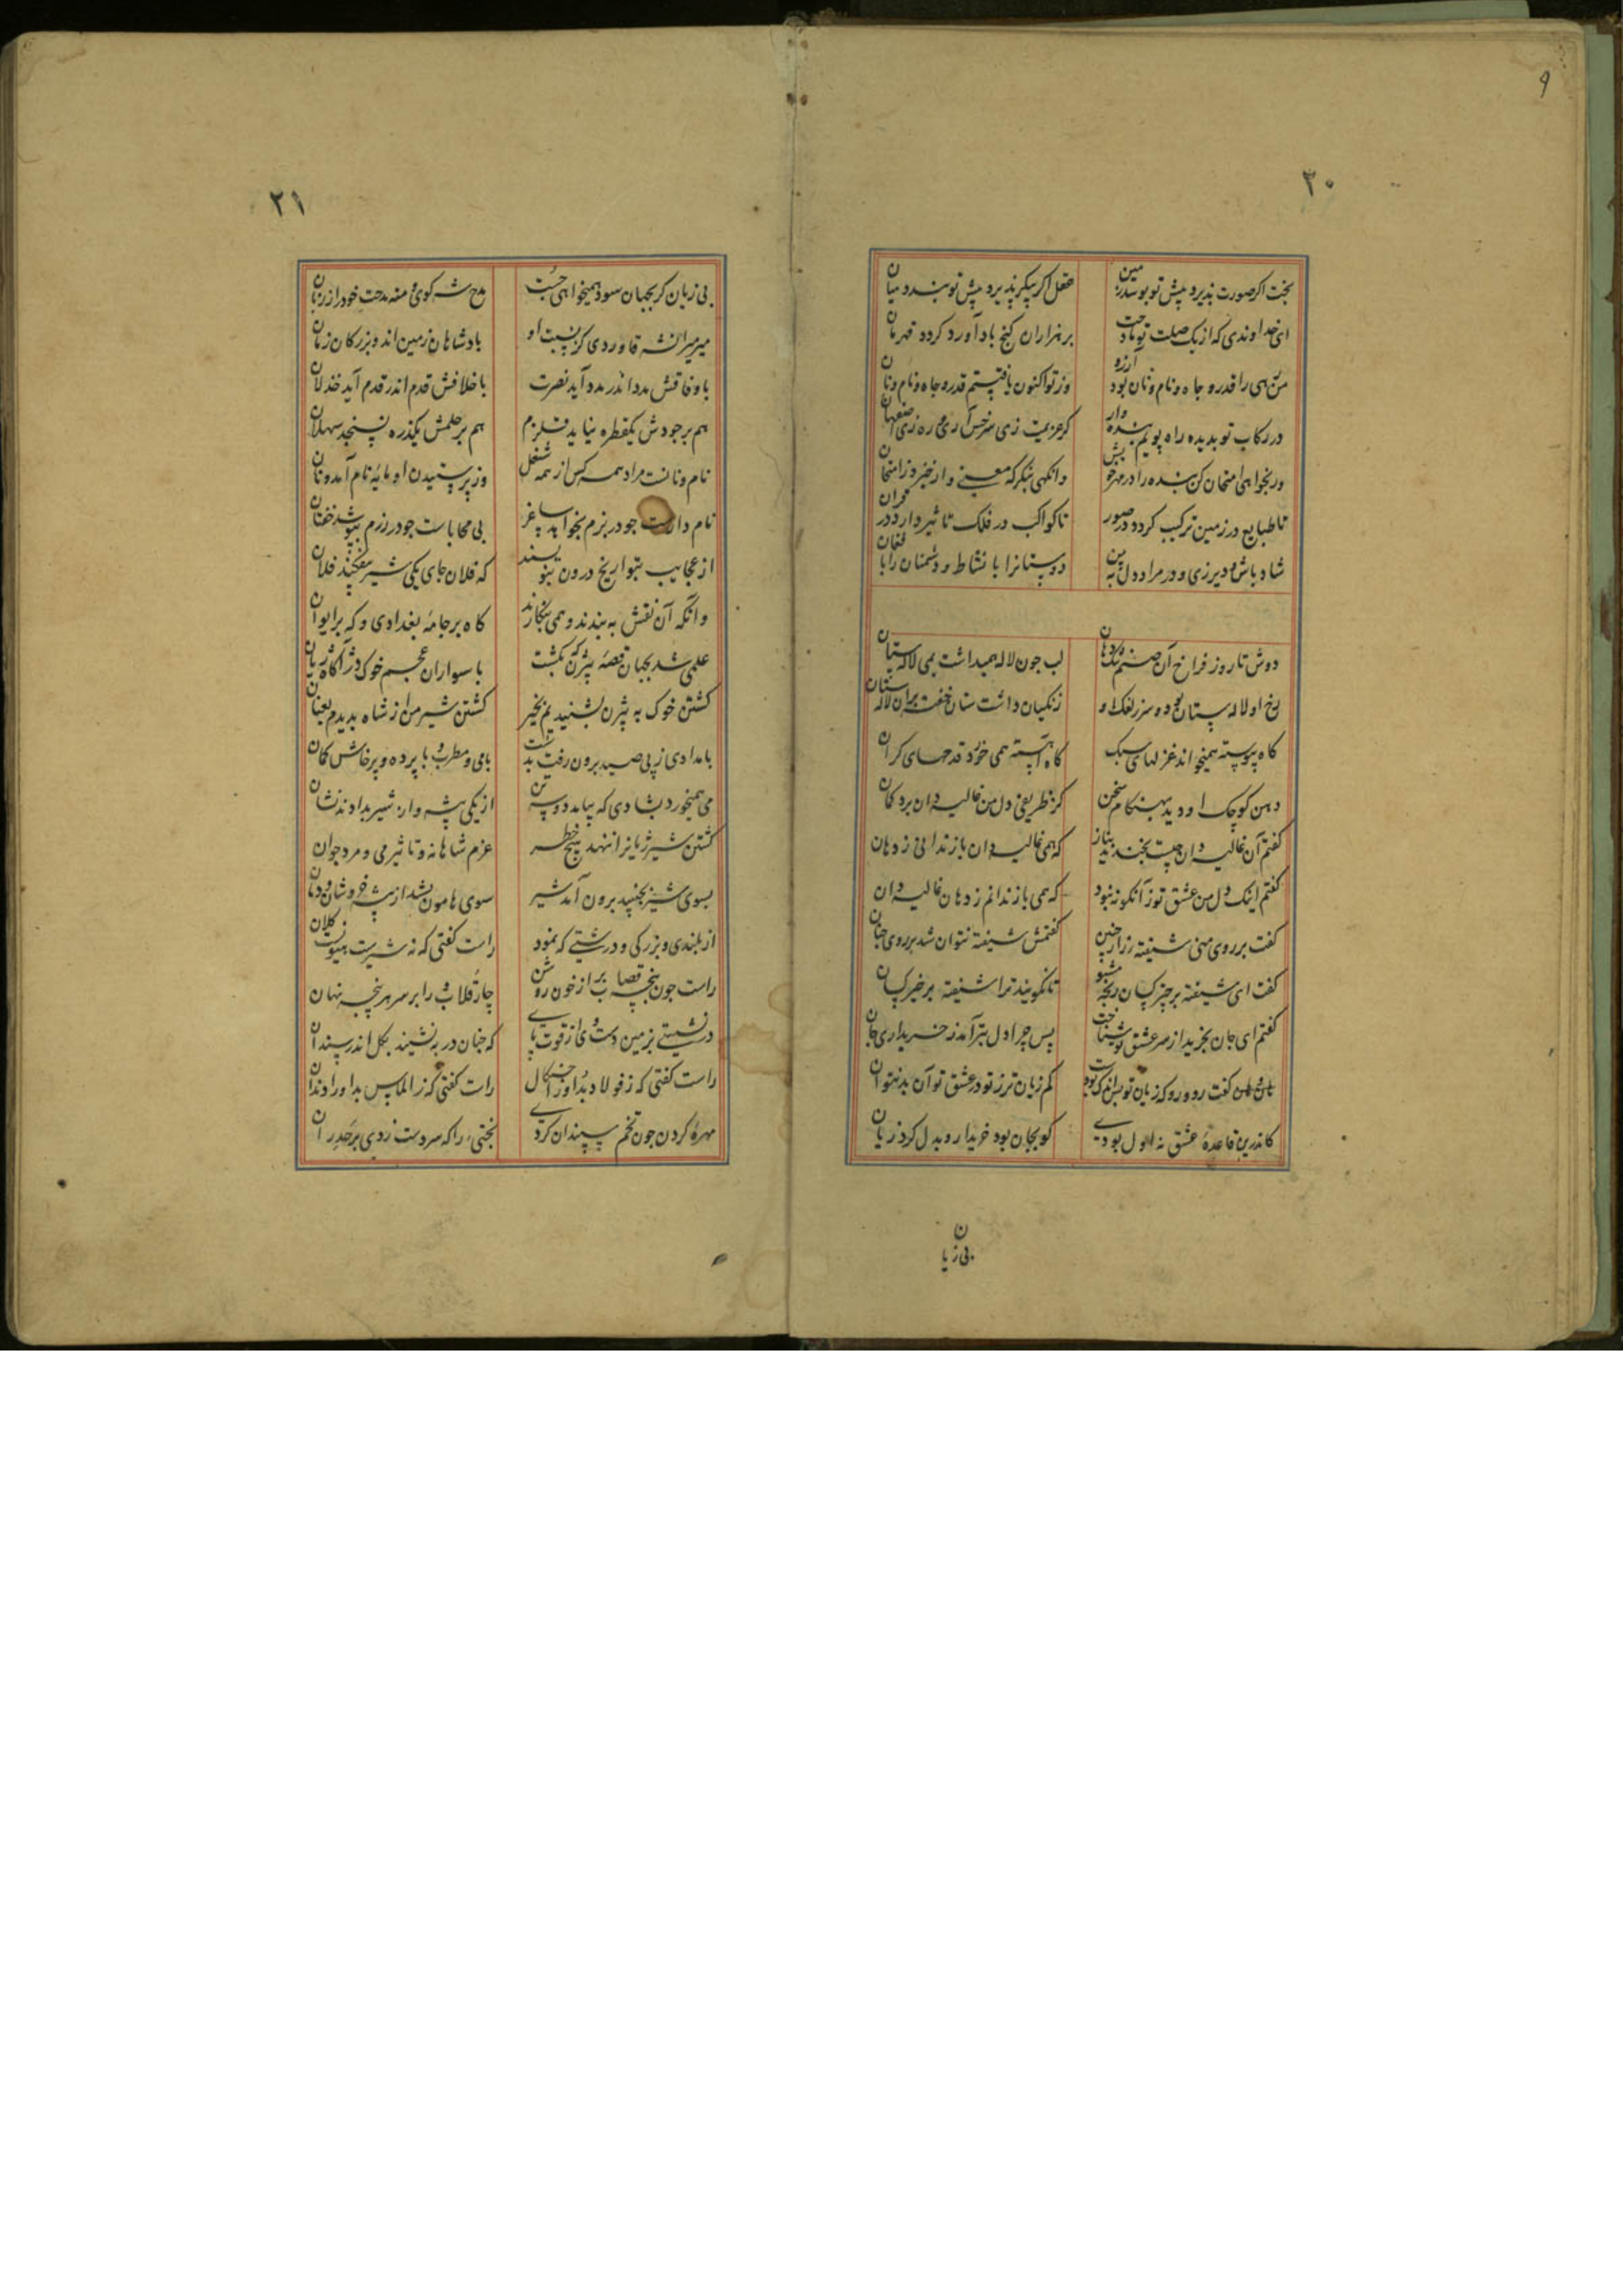 ۹
۲۰
بخت اگر صورت پذیرد پیش تو بوسد زمین
عقل اگر پیکر پذیرد پیش تو بندد میان
ای خداوندی که از یک صلت تو مادحت
بر هزاران گنج باد آورد گردد قهرمان
من رهی را قدر و جاه و نام و نان بود آرزو
وز تو اکنون یافتستم قدر و جاه و نام و نان
در رکاب تو بدیده راه پویم بنده وار
گر عزیمت زی سرخس آری و ره زی اصفهان
ور بخواهی امتحان کن بنده را در مهر خویش
وانگهی بنگر که معنی وار خیزد زامتحان
تا طبایع در زمین ترکیب گردد در صور
تا کواکب در فلک تاثیر دارد در قران
شاد باش و دیر زی و در مراد دل ببین
دوستانرا با نشاط و دشمنان را با فغان
دوش تا روز فراخ آن صنم تنگ دهان
لب چون لاله همیداشت بمی لاله ستان
رخ او لاله ستان بود و سر زلفک او
زنگیان داشت ستان خفته بران لاله ستان
گاه پیوسته همیخواند غزلهای سبک
گاه آهسته همی خورد قدحهای گران
دهن کوچک او دید بهنگام سخن
کز ظریفی دل من غالیه دان برد گمان
گفتم آن غالیه دان چیست بخندید بناز
که همی غالیه دان باز ندانی ز دهان
گفتم اینک دل من عشق تو زانگونه نبود
که همی باز ندانم ز دهان غالیه دان
گفت بر روی منی شیفته زار چنین
گفتمش شیفته نتوان شد بر روی چنان
گفت ای شیفته بر چیز کسان رنجه مشو
تا نگویند ترا شیفته بر خیر کسان
گفتم ای جان بخرید از سر عشق تو شناخت
پس چرا دل بتر آمد ز خریداری جان
گفت رو رو که زیان تو بس اندک بودست
کم زیان تر ز تو در عشق تو آن بد نتوان
کاندرین قاعده عشق نه اول بودی
کو بجان بود خریدار و بدل کرد زیان
بی زیان
۲۱
بی زیان گر بجهان سود همیخواهی جست
مدح شه گوی و منه مدحت خود را ز زبان
میر میرانشه قاوردی کز نسبت او
پادشاهان زمین اند و بزرگان زمان
با وفاقش مدد اندر مدد آید نصرت
با خلافش قدم اندر قدم آید خذلان
هم بر جودش یکقطره نیاید قلزم
هم بر حلمش یکذره نسنجد سهلان
نام و نانست مراد همه کس از همه شغل
وز پرستیدن او مایه نام آمد و نان
نام دارست چو در بزم بخواهد ساغر
بی محاباست چو در رزم بپوشد خفتان
از عجایب بتواریخ درون بنویسند
که فلان جای یکی شیر بیفکند فلان
وانگه آن نقش ببندند و همی بنگارند
گاه بر جامه بغدادی و گه بر ایوان
علمی شد بجهان قصه بیژن که بکشت
با سواران عجم خوک دژ آگاه ژیان
کشتن خوک به بیژن بشنیدیم بخبر
کشتن شیر من از شاه بدیدم بعیان
بامدادی ز پی صید برون رفت بدشت
با می و مطرب و با پرده و پرخاش کمان
می همیخورد بشادی که بیامد دو سه تن
از یکی بیشه و از شیر بدادند نشان
کشتن شیر ژیانرا ننهد هیچ خطر
عزم شاهانه و تاثیر می و مرد جوان
بسوی شیر بجنبید برون آمد شیر
سوی هامون شد از بیشه خروشان و دمان
از بلندی و بزرگی و درشتی که نمود
راست گفتی که نه شیرست هیونیست کلان
راست چون پنجه قصاب بر از خون روشن
چار قلاب و را بر سر هر پنجه نهان
در نشستی بزمین دست وی از قوت پای
که چنان در بنشیند بگل اندر سندان
راست گفتی که ز فولاد بد او را چنگال
راست گفتی که ز الماس بد او را دندان
مهره گردن چون تخم سپندان کردی
بختئی را که سر دست زدی بر حدران